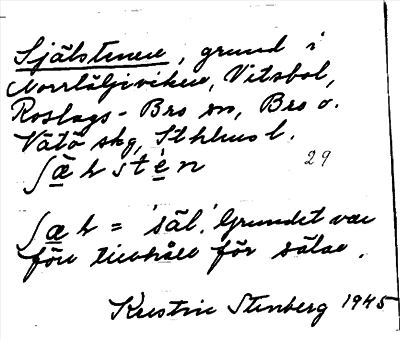 Själstenen, grund i
Norrtäljeviken, Vitsbol,
Roslags-Bro sn, Bro o.
Vätö skg, Sthlms l.
ʃä̱lstè̱n 29
ʃä̱l = 'säl'. Grundet var
förr tillhåll för sälar.
Kerstin Stenberg 1945